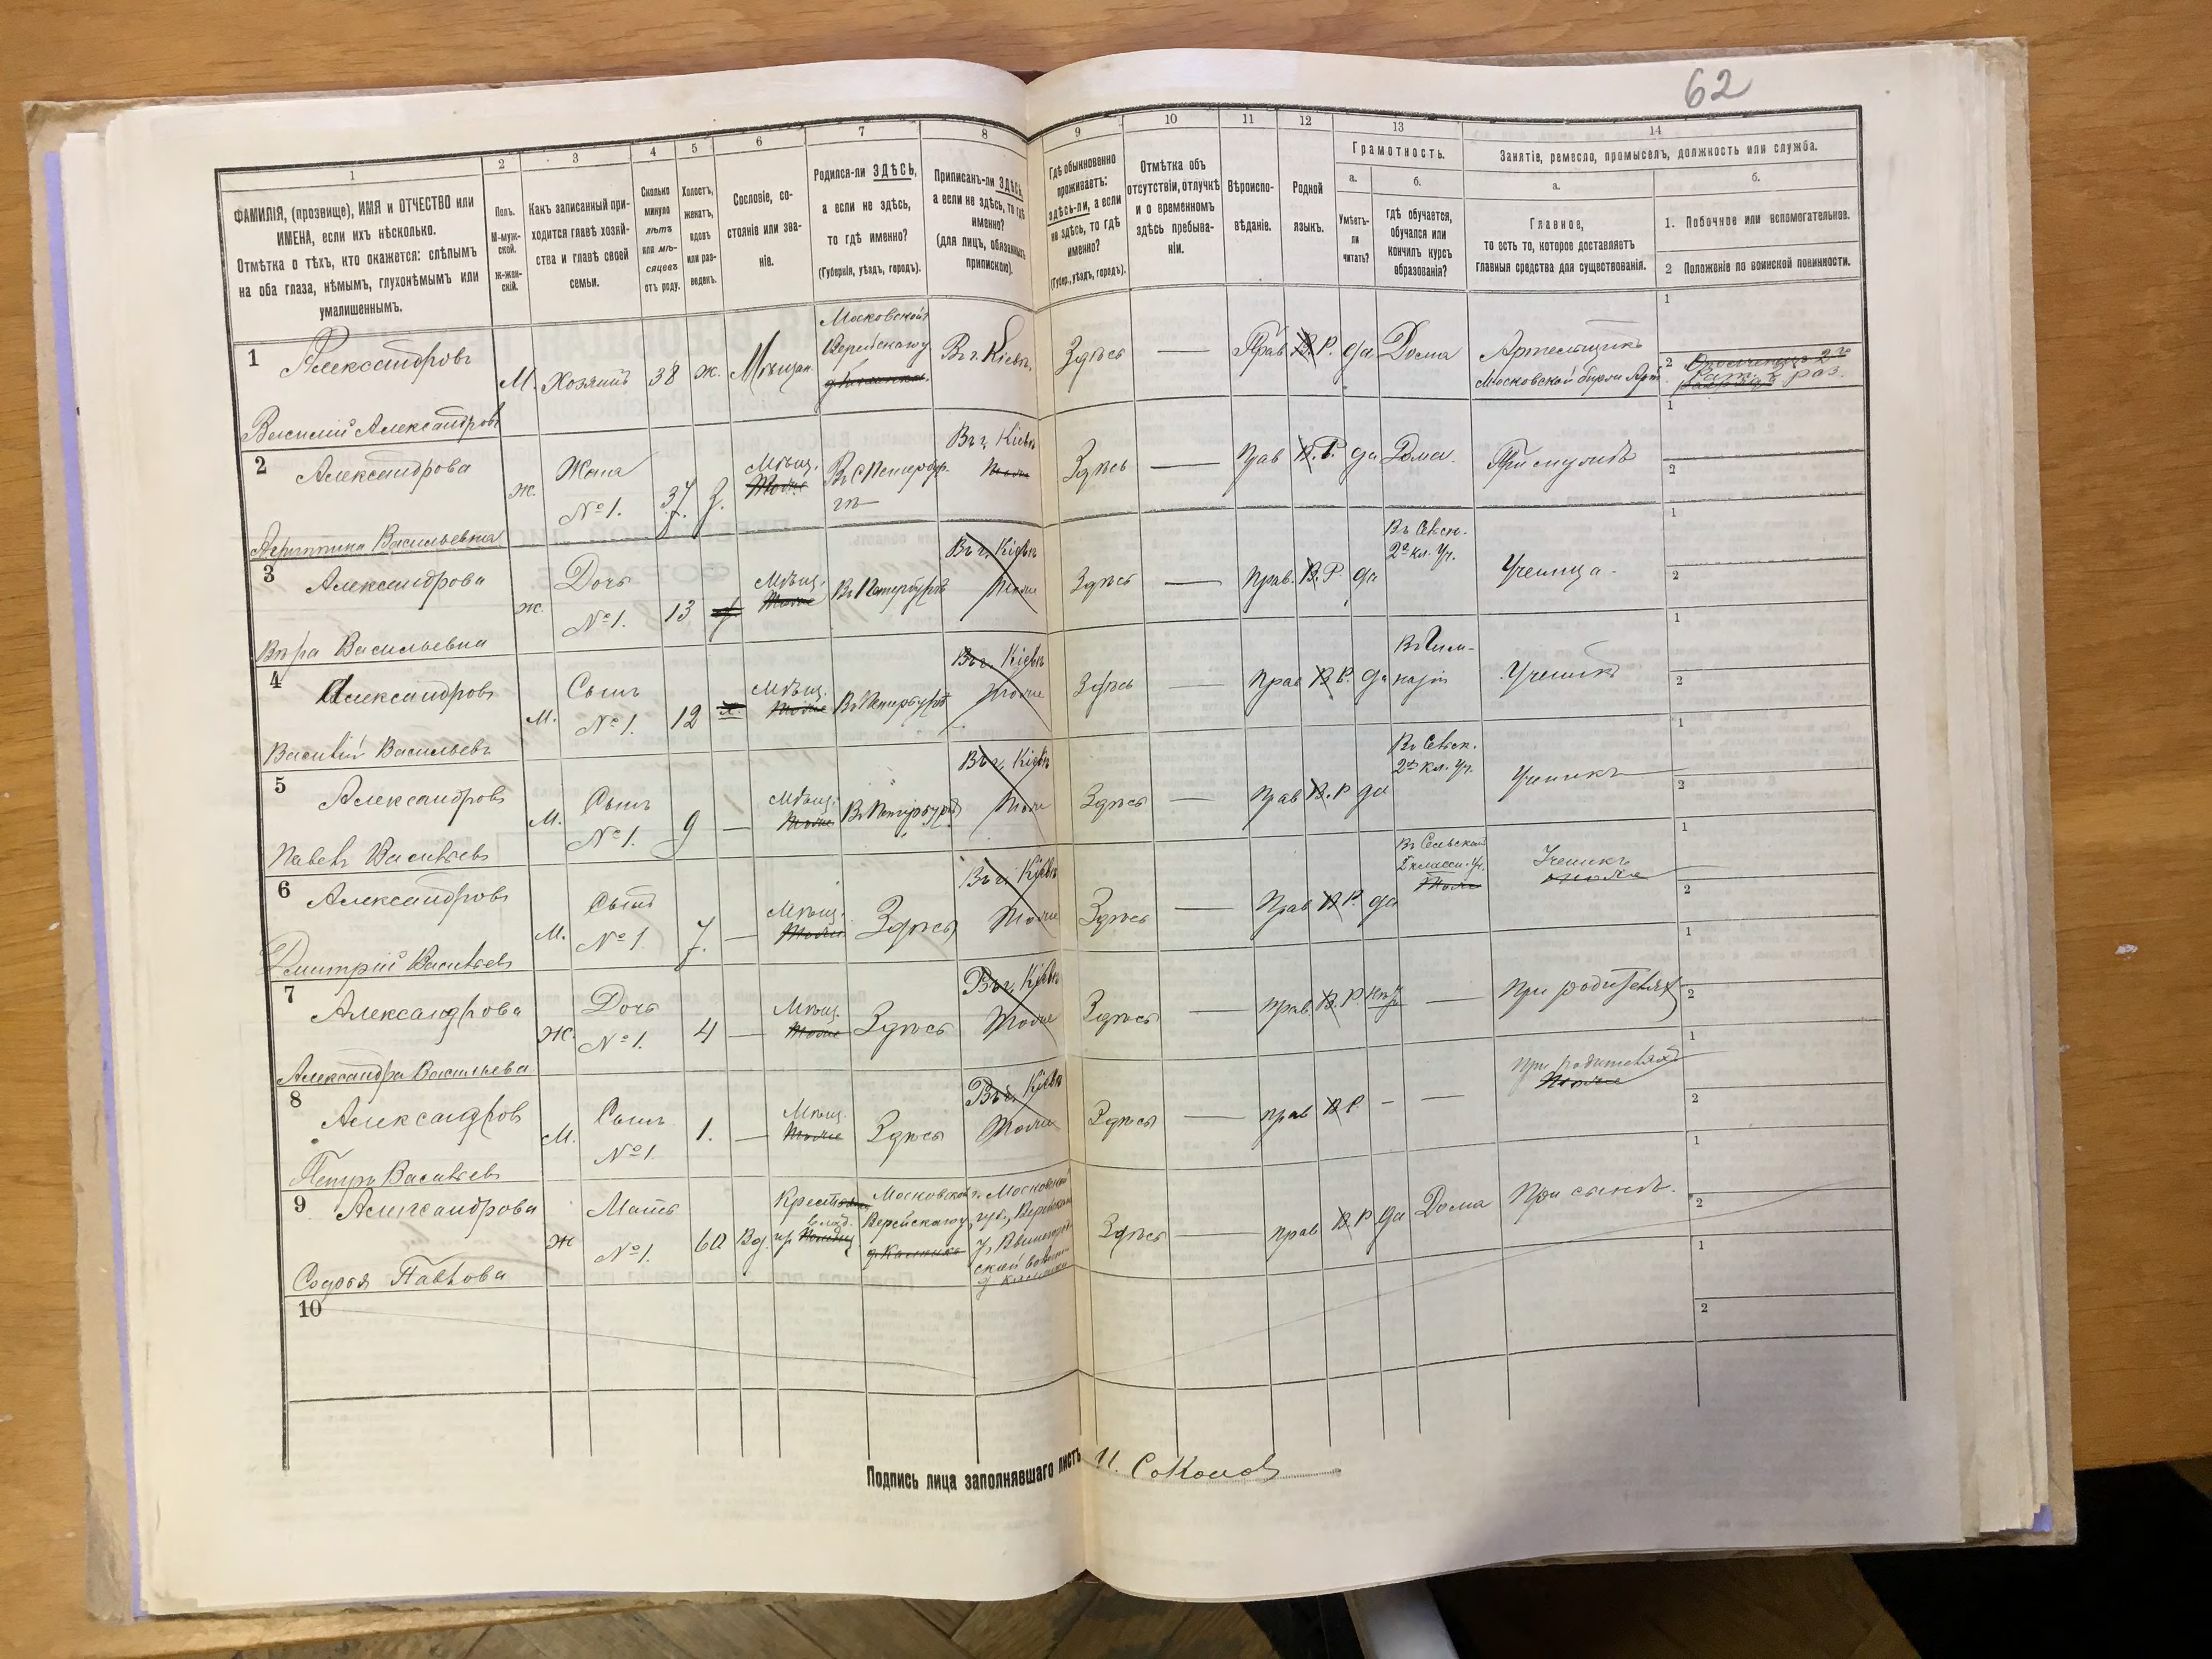 62
1
2
3
4
5
6
7
8
9
10
11
12
13
14
ФАМИЛІЯ, (прозвище), ИМЯ и ОТЧЕСТВО или
ИМЕНА, если ихъ нѣсколько.
Отмѣтка о тѣхъ, кто окажется: слѣпымъ
на оба глаза, нѣмымъ, глухонѣмымъ или
умалишеннымъ.
Полъ.
М-муж-
ской.
ж-жен-
скій.
Какъ записанный при-
ходится главѣ хозяй-
ства и главѣ своей
семьи.
Сколько
минуло
лѣтъ
или мѣ-
сяцевъ
отъ роду.
Холостъ,
женатъ,
вдовъ
или раз-
веденъ.
Сословіе, со-
стояніе или зва-
ніе.
Родился-ли ЗДѢСЬ,
а если не здѣсь,
то гдѣ именно?
(Губернія, уѣздъ, городъ).
Приписанъ-ли ЗДѢСЬ,
а если не здѣсь, то гдѣ
именно?
(для лицъ, обязанныхъ
припискою).
Гдѣ обыкновенно
проживаетъ:
здѣсь-ли, а если
не здѣсь, то гдѣ
именно?
(Губер., уѣздъ, городъ).
Отмѣтка объ
отсутствіи, отлучкѣ
и о временномъ
здѣсь пребыва-
ніи.
Вѣроиспо-
вѣданіе.
Родной
языкъ.
Грамотность.
а.
Умѣетъ-
ли
читать?
б.
гдѣ обучается,
обучался или
кончилъ курсъ
образованія?
Занятіе, ремесло, промыселъ, должность или служба.
а.
Главное,
то есть то, которое доставляетъ
главныя средства для существованія.
б.
1. Побочное или вспомогательное.
2 Положеніе по воинской повинности.
1 Александровъ
Василій Александровъ
М. Хозяинъ 38 ж. Мѣщан.
Московской
Верейскаго у.
Въ г. Кіевѣ
Здѣсь — Прав В. Р. да Дома
Артельщикъ
Московской биржи Арт.
1
2 Ополченецъ 2го
раз.
2 Александрова
Агриппина Васильевна
ж. Жена
№ 1. 37 З. Мѣщ.
Тоже
Въ С Петербур-
гѣ
Въ г. Кіевѣ
Тоже
Здѣсь — Прав В. Р. да Дома. При мужѣ
1
2
3 Александрова
Вѣра Васильевна
ж. Дочь
№ 1. 13 Мѣщ.
Тоже
Въ Петербургѣ
Въ г. Кіевѣ
Тоже
Здѣсь — Прав. В. Р. да
Въ Сельск.
2х кл. Уч.
Ученица
1
2
4 Александровъ
Василій Васильевъ
М. Сынъ
№ 1. 12 Мѣщ.
Тоже
Въ Петербургѣ
Въ г. Кіевѣ
Тоже
Здѣсь — Прав В. Р. да
Въ Гим-
назіи
Ученикъ
1
2
5 Александровъ
Павелъ Васильевъ
М. Сынъ
№ 1. 9 — Мѣщ.
Тоже
Въ Петербургѣ
Въ г. Кіевѣ
Тоже
Здѣсь — Прав В. Р да
Въ Сельск.
2х кл. Уч.
Ученикъ
1
2
6 Александровъ
Дмитрій Васильевъ
М. Сынъ
№ 1. 7. — Мѣщ.
Тоже
Здѣсь
Въ г. Кіевѣ
Тоже
Здѣсь — Прав В. Р. да
Въ Сельской
2 класси. Уч.
Тоже
Ученикъ
тоже
1
2
7 Александрова
Александра Васильева
Ж. Дочь
№ 1. 4 — Мѣщ.
Тоже
Здѣсь
Въ г. Кіевѣ
Тоже
Здѣсь — Прав. В. Р. нѣт — При родителях
1
2
8 Александров
Петръ Васильевъ
М. Сынъ
№ 1 1. — Мѣщ.
Тоже
Здѣсь
Въ г. Кіевѣ
Тоже
Здѣсь — прав В Р. - — При родителяхъ
Тоже
1
2
9 Александрова
Софья Павлова
Ж Мать
№ 1. 60 Вд.
Московской
Верейскаго у.
д. Каменка
Московской
губ., Верейскаго
Здѣсь — прав В. Р да Дома При сынѣ.
1
2
10
1
2
Подпись лица заполнявшаго листъ И. Соколов